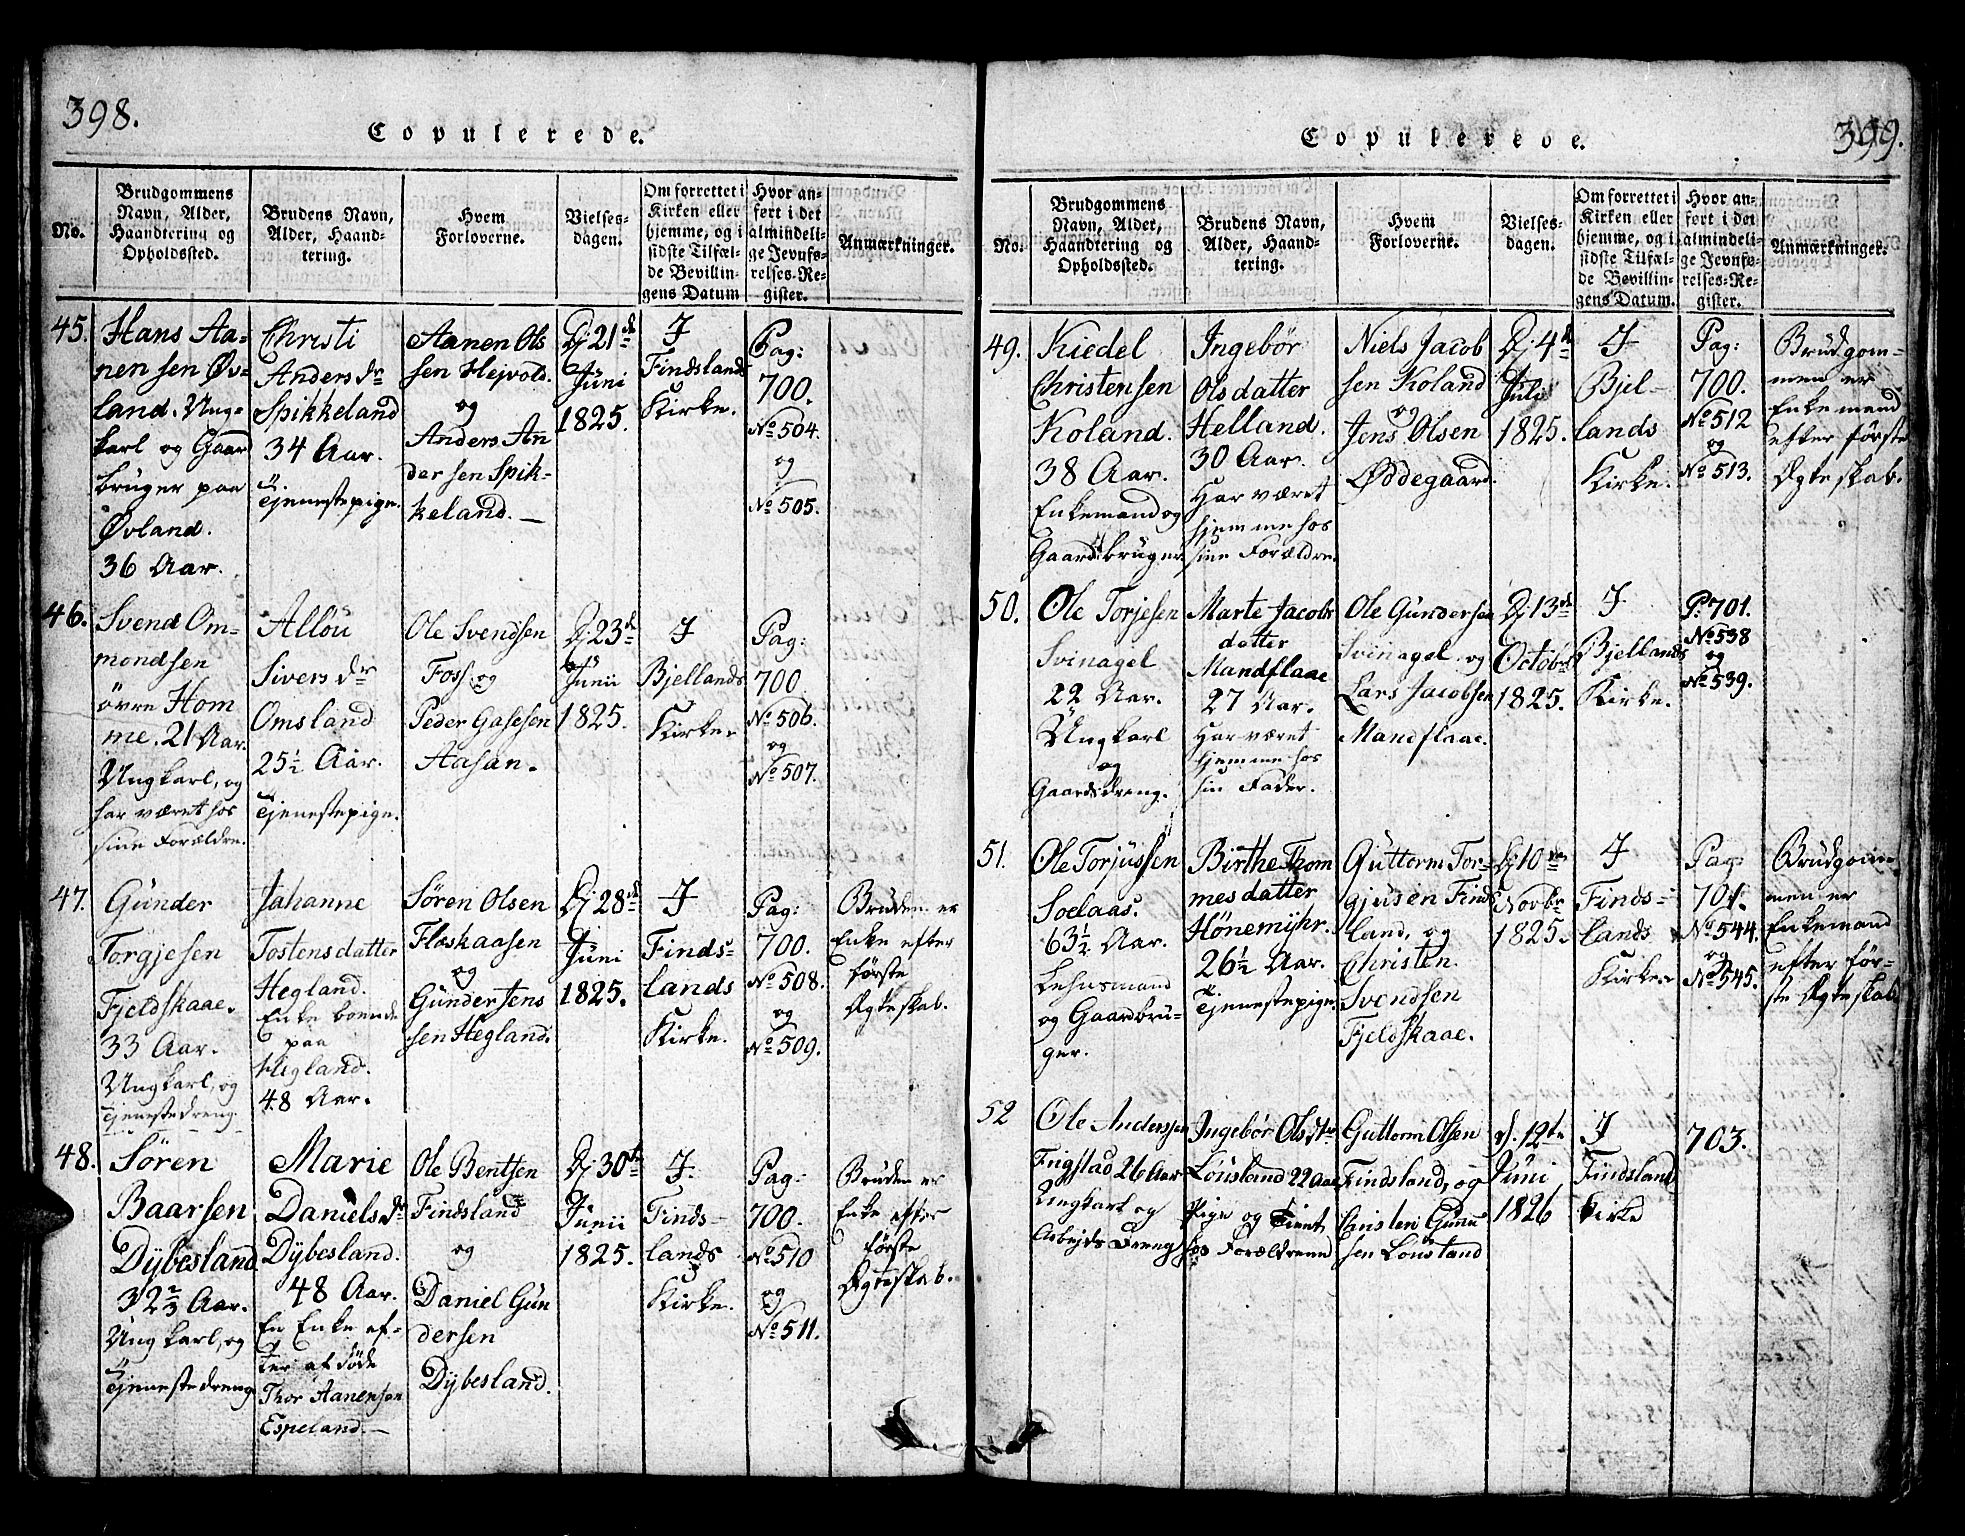 398.
Copulerede.
No.
Brudgommens
Navn, Alder,
Haandtering og
Opholdssted.
Brudens Navn,
Alder, Haand-
tering.
Hvem
Forloverne.
Vielses-
dagen.
Om forrettet i
Kirken eller
hjemme, og i
sidste Tilfæl-
de Bevillin-
gens Datum
Hvor an-
ført i det
almindeli-
ge Jevnfø-
relses-Re-
gister.
Anmærkninger.
45.
Hans Aa-
nensen Øv-
land. Ung-
karl og Gaard
bruger paa
Øvland.
36 Aar.
Christi
Andersdr
Spikkeland
34 Aar.
Tjenestepige.
Aanen Ols
sen Hejvold.
og
Anders An
dersen Spik-
keland. —
Dj 21de
Juni
1825.
I
Findslands
Kirke.
Pag:
700.
No 504.
og
No 505.
46.
Svend Om-
mondsen
øvre Hom
me. 21 Aar.
Ungkarl, og
har været hos
sine Forældre.
Allou
Siversdr
Omsland
25½ Aar.
Tjenestepige.
Ole Svendsen
Foss og
Peder Gasesen
Aasan.
Dj 23de
Junii
1825.
I
Bjellands
Kirke
Pag:
700
No 506.
og
No 507.
47.
Gunder
Torgjesen
Fjeldskaae.
33 Aar.
Ungkarl, og
Tjenestedreng.
Johanne
Tostensdatter
Hegland.
Enke boende
paa
Hegland.
48 Aar.
Søren Olsen
Floskaasen
og
Gunder Tens
sen Hegland.
Dj 28de
Juni
1825.
I
Finds-
lands
Kirke.
Pag:
700.
No 508.
og
No 509.
Bruden er
Enke efter
første
Ægteskab.
48.
Søren
Baarsen
Dybesland
32⅔ Aar.
Ungkarl, og
Tjenestedreng
Marie
Danielsdr
Dybesland.
48 Aar.
En Enke ef-
ter afdøde
Thor Aanensen
Espeland. —
Ole Bentsen
Findsland
og
Daniel Gun
dersen
Dybesland.
Dj 30te
Junii
1825.
I
Finds-
lands
Kirke.
Pag:
700.
No 510
og
No 511.
Bruden er
Enke efter
første
Ægteskab.
399.
Copulerede.
No.
Brudgommens
Navn, Alder,
Haandtering og
Opholdssted.
Brudens Navn,
Alder, Haand-
tering.
Hvem
Forloverne.
Vielses-
dagen.
Om forrettet i
Kirken eller
hjemme, og i
sidste Tilfæl-
de Bevillin-
gens Datum.
Hvor an-
ført i det
almindeli-
ge Jevnfø-
relses-Re-
gister.
Anmærkninger.
49.
Kiedel
Christensen
Koland.
38 Aar.
Enkemand og
Gaardsbruger
Ingebør
Olsdatter
Helland.
30 Aar.
Har været
hjemme hos
sine Forældre.
Niels Jacob
sen Koland
og
Jens Olsen
Ødegaard.
Dj 4de
Juli
1825.
I
Bjel-
lands
Kirke.
Pag:
700.
No 512
og
No 513.
Brudgom-
men er
Enkemand
efter første
Ægteskab.
50.
Ole Torjesen
Svinagel
22 Aar.
Ungkarl
og
Gaardsdreng.
Marte Jacobs
datter
Mandflaae
27 Aar.
Har været
hjemme hos
sin Fader.
Ole Gundersen
Svinagel og
Lars Jacobsen
Mandflaae.
Dj 13de
Octobr
1825.
I
Bjellands
Kirke.
P: 701.
No 538
og
No 539.
51.
Ole Torjussen
Soelaas.
63½ Aar.
Lehnsmand
og Gaardbru-
ger.
Birthe Thom
mesdatter
Hønemyhr.
26½ Aar.
Tjenestepige
Guttorm Tor-
gjusen Finds
land, og
Christen
Svendsen
Fjeldskaae.
Dj 10de
Novbr
1825.
I
Finds-
lands
Kirke
Pag:
701.
No 544.
og
No 545.
Brudgom-
men er
Enkemand
efter før-
ste Ægteskab
52
Ole Anderssen
26 Aar
Ungkarl og
Arbejdsdreng
Ingebør Olsdtr
Lousland 22 Aar
Pige og tient
hos Forældrene
Guttorm Olsen
Findsland, og
Christen Gunu
sen Lousland
d. 12te
Juni
1826
I
Findsland
Kirke
703.